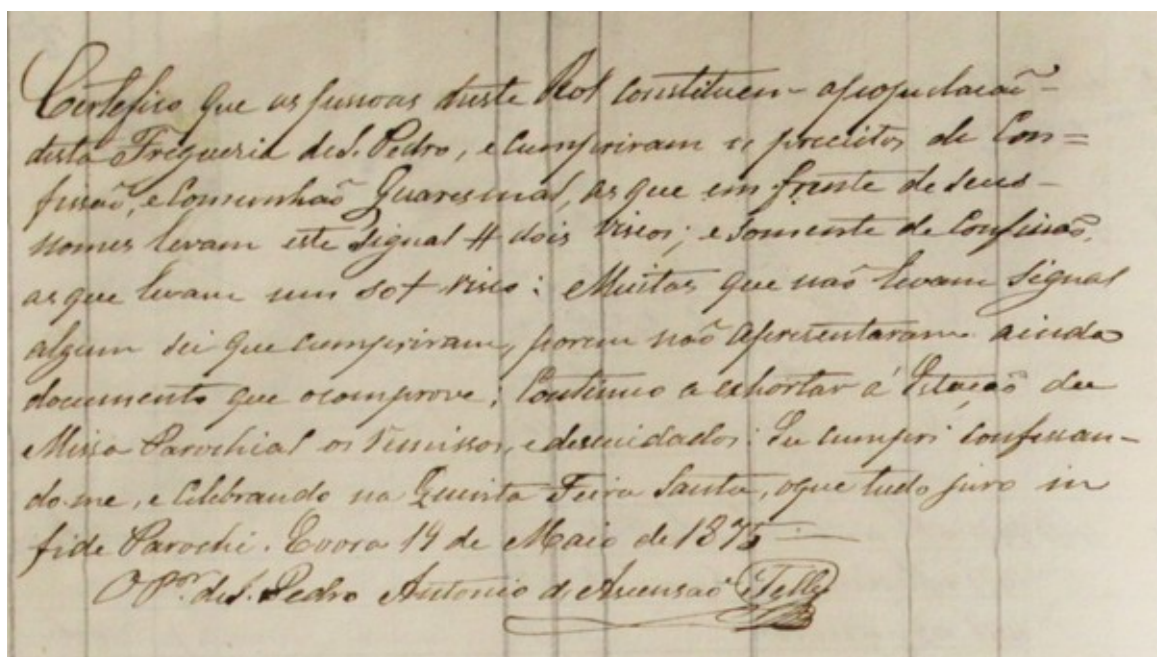 Certefico que as pessoas deste Rol constituem a população
desta Freguezia de S. Pedro, e cumpriram os preceitos de Con=
fissaõ, e Comunhaõ Quaresmal, as que em frente de seus
nomes levam este Signal # dois riscos; e somente de Confissaõ,
as que levam um so + risco: Muitas que naõ levam Signal
algum sei que cumpriram, porem naõ apresentaram ainda
documento que o comprove; Continuo a exhortar á Estaçaõ da
Missa Parochial os remissos, e descuidados: Eu cumpri confessan-
do-me, e Celebrando na Quinta Feira Santa, o que tudo juro in
fide Parochi. Evora 19 de Maio de 1875
O P.or de S. Pedro Antonio d'Ascensaõ Telles